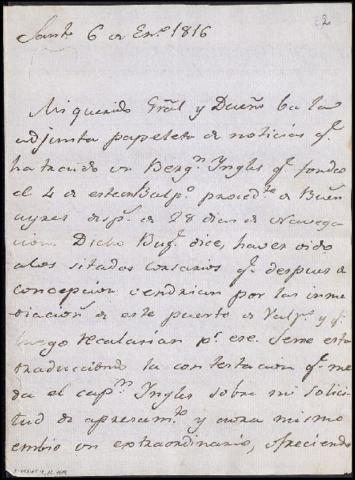 2
Sant.º 6 de En.º 1816
Mi querido Gral y Dueño ba la
adjunta papeleta de noticias q.e
ha traido un Berg.n Ingles q.e fondeo
el 4 de este en Balp.o proced.te de Buen.s
ayres desp.s de 28 dias de Navega
cion. Dicho Buq.e dice, haver oido
a los sitados corsarios q.e despues de
concepcion vendrian por las inme
diaciones de este puerto de Valp.o y q.e
luego recalarian p.a ese. Seme esta
traduciendo la contestacion q.e me
da el cap.n Ingles sobre mi solici
tud de apresam.to y aora mismo
embio un extraordinario, ofreciendo